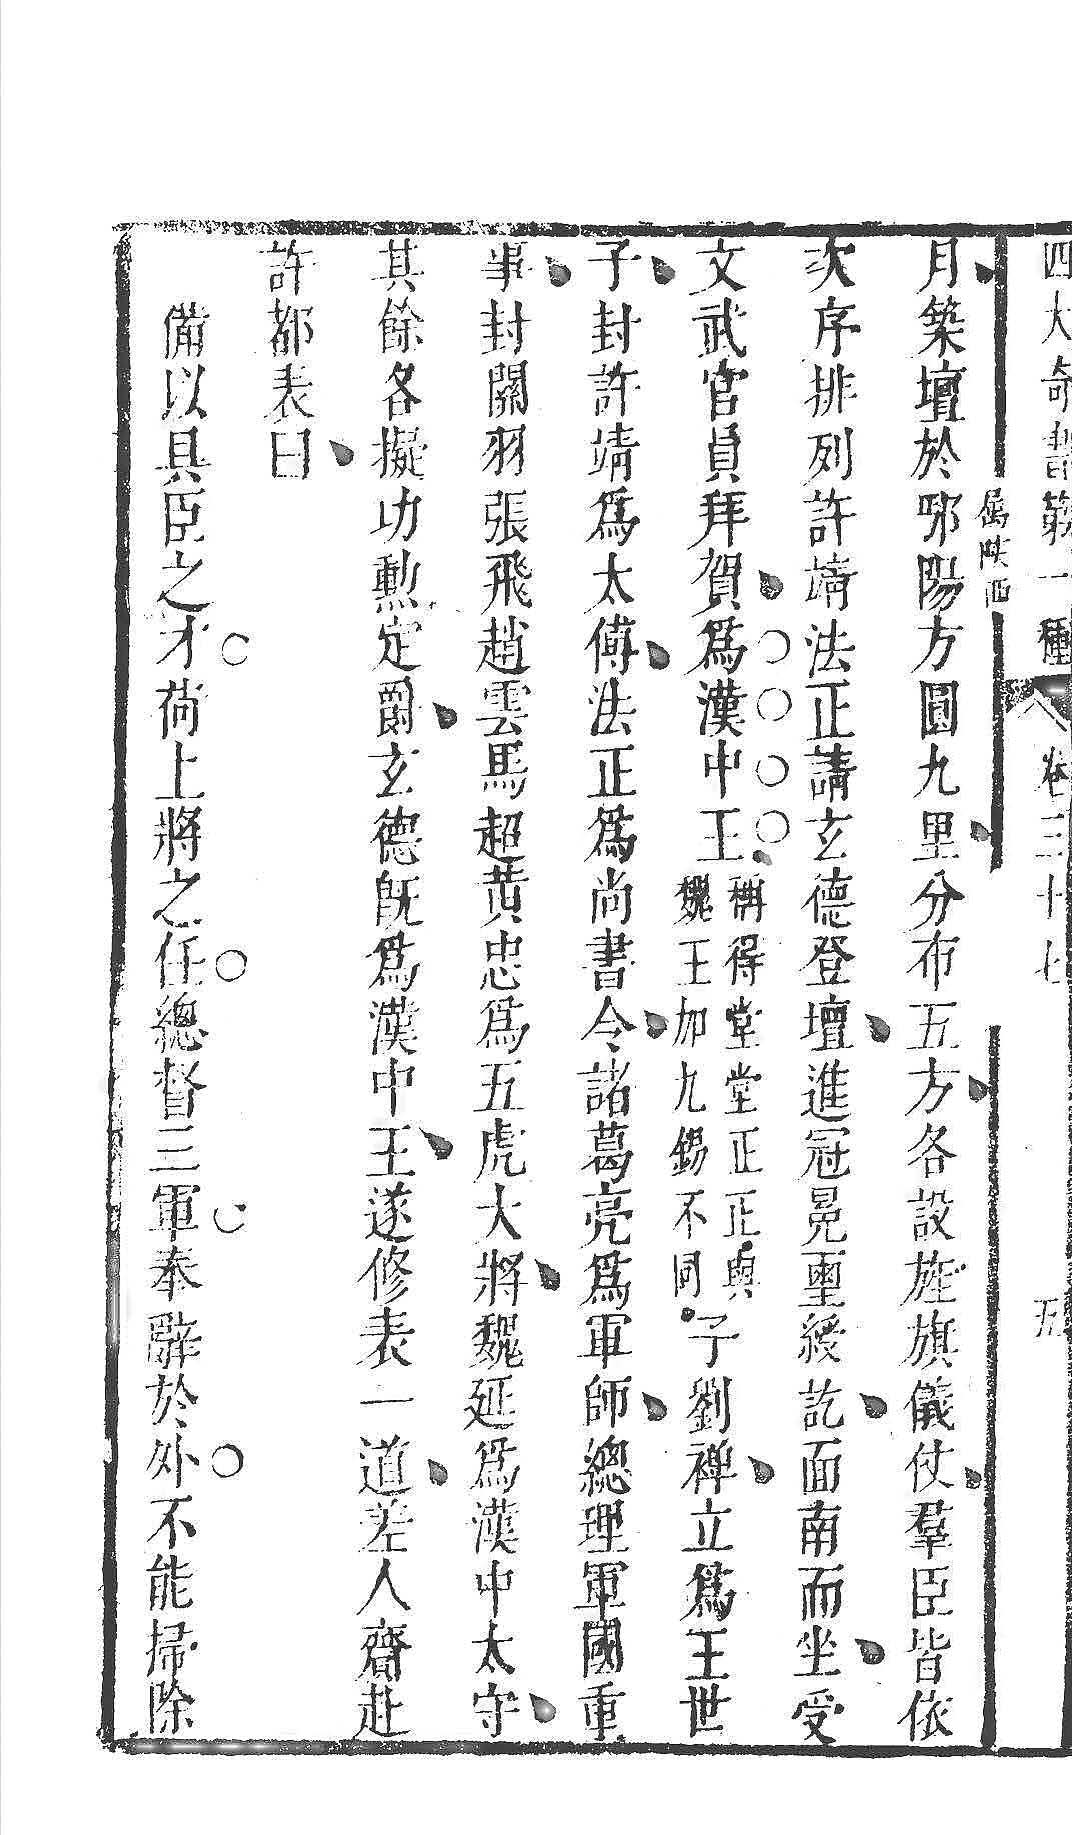 四大奇書第一種 卷三十七 五
屬陝西
月築壇於郉陽方圓九里分布五方各設旌旗儀仗羣臣皆依
次序排列許靖法正請玄德登壇進冠冕璽綬訖面南而坐受
文武官員拜賀爲漢中王稱得堂堂正正與魏王加九錫不同子劉禪立爲王世
子封許靖爲太傅法正爲尚書令諸葛亮爲軍師總理軍國重
事封關羽張飛趙雲馬超黄忠爲五虎大將魏延爲漢中太守
其餘各擬功勲定爵玄德既爲漢中王遂修表一道差人齎赴
許都表曰
備以具臣之才荷上將之任總督三軍奉辭於外不能掃除